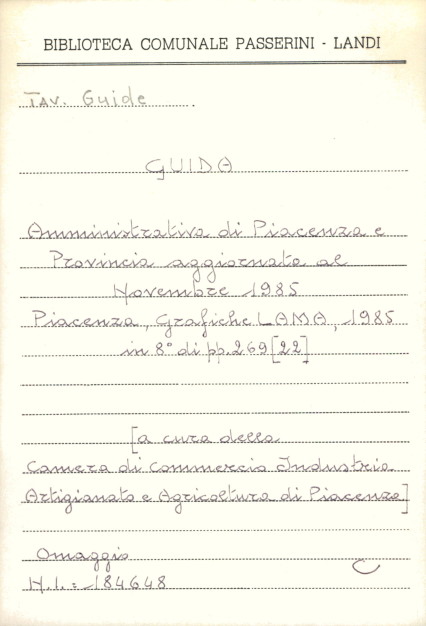 BIBLIOTECA COMUNALE PASSERINI - LANDI
TAV. Guide
GUIDA
Amministrativa di Piacenza e
Provincia aggiornata al
Novembre 1985
Piacenza, Grafiche LAMA, 1985
in 8° di pp. 269 [22]
[a cura della
Camera di Commercio Industria
Artigianato e Agricoltura di Piacenza]
Omaggio C
N.I.: 184648